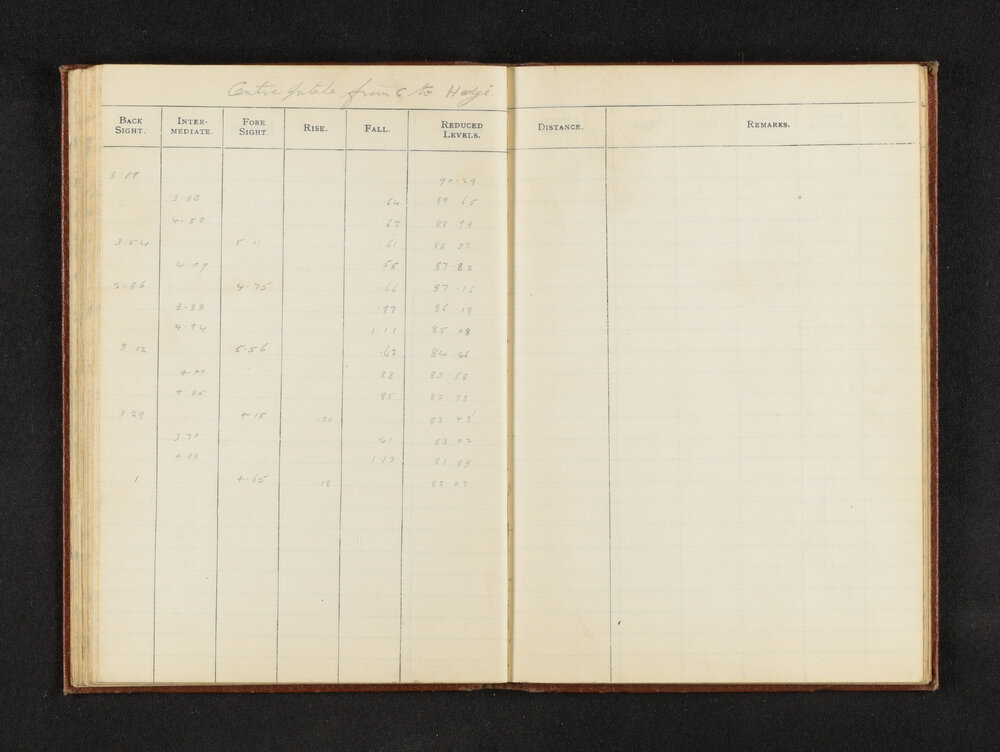 from C to Hedge
BACK SIGHT. INTER-MEDIATE. FORE SIGHT. RISE. FALL. REDUCED LEVELS. DISTANCE. REMARKS.
3.19 90.29
3.83 .64 89.65
4.50 .67 88.98
3.54 5.11 .61 88.37
4.09 .55 87.82
2.86 4.75 .66 87.16
3.83 .97 86.19
4.94 1.11 85.08
3.12 5.56 .62 84.46
4.00 .88 83.58
4.85 .85 82.73
3.29 4.15 .70 83.43
3.70 .41 83.02
4.83 1.13 81.89
4.65 .18 82.07